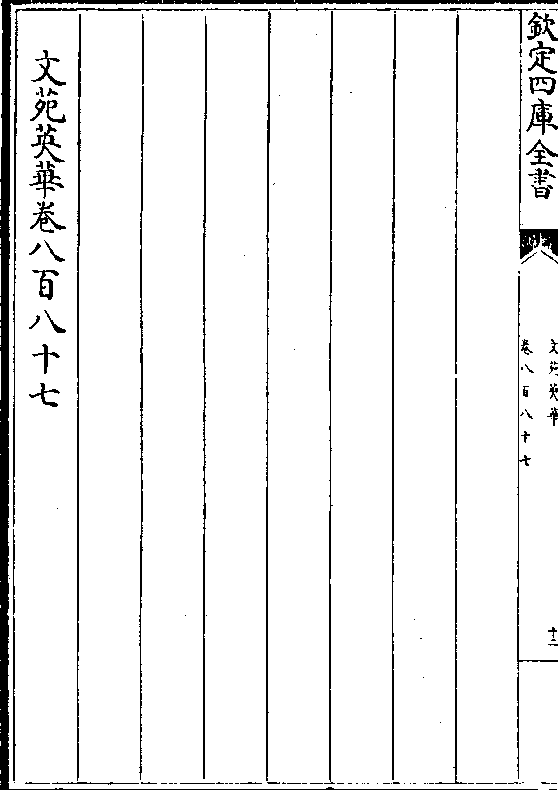 欽定四庫全書
文苑英華
卷八百八十七
十二
文苑英華卷八百八十七